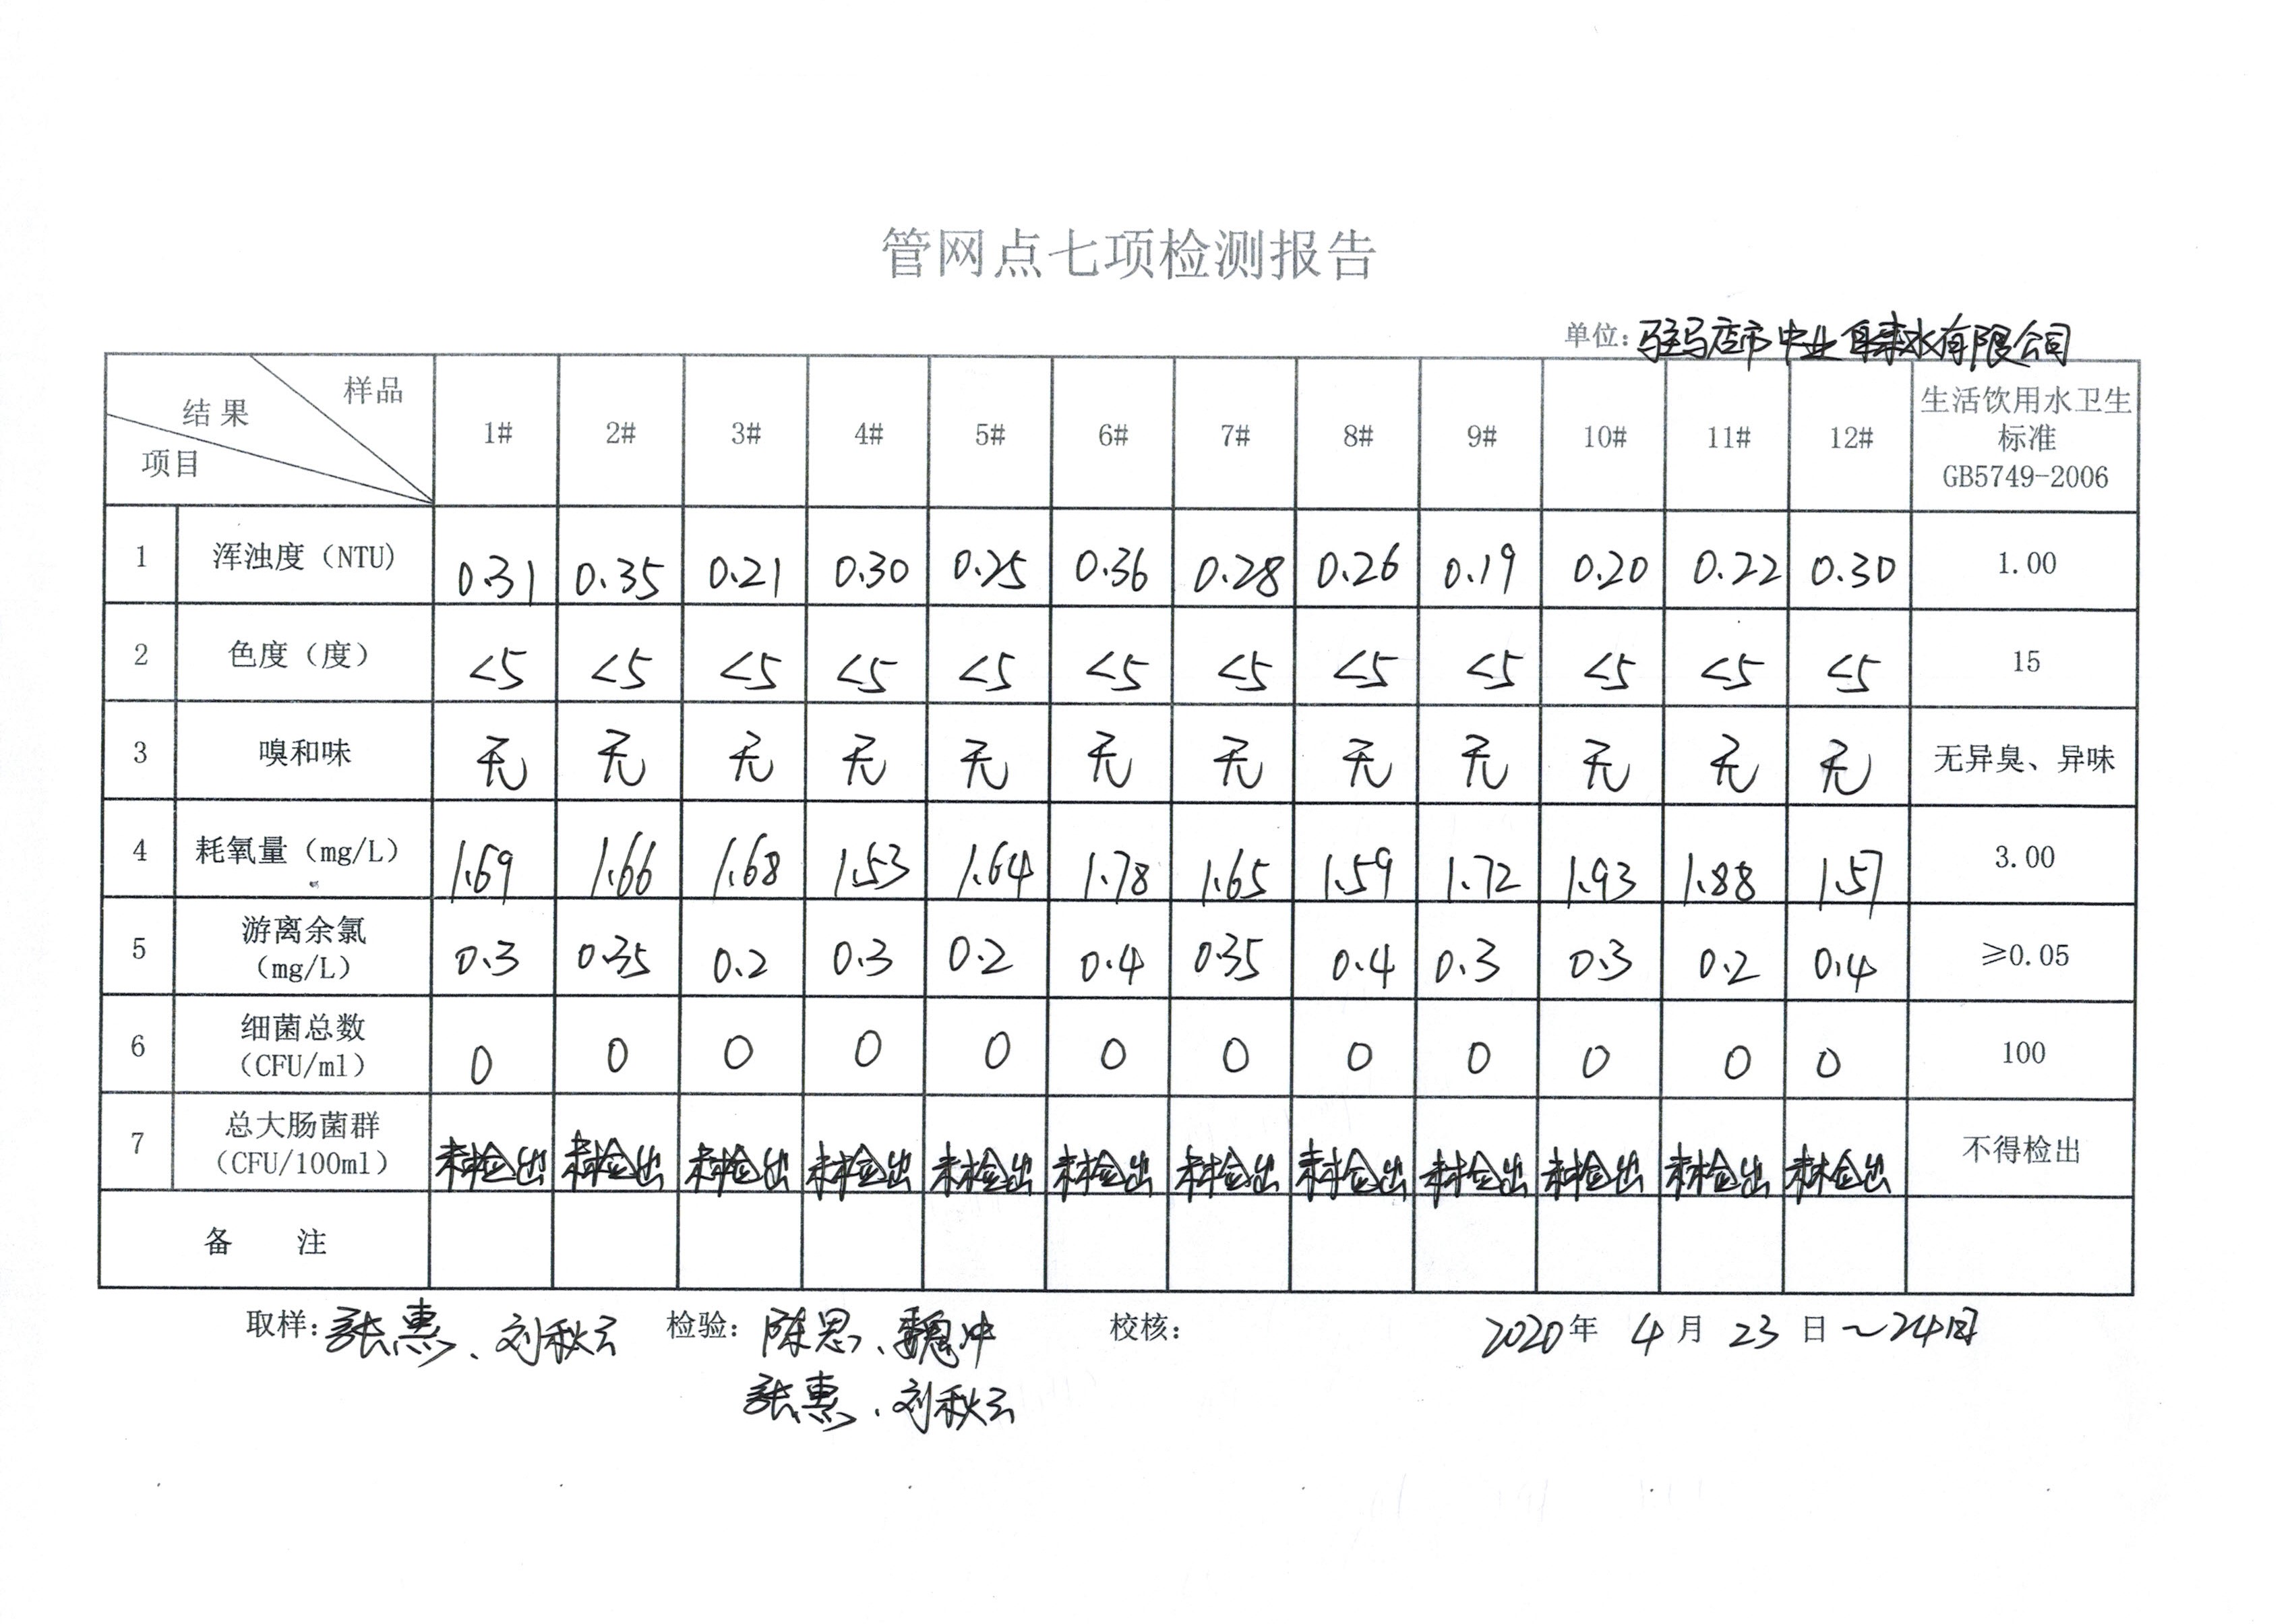 管网点七项检测报告
单位：驻马店市中业自来水有限公司
样品
结果
项目
1# 2# 3# 4# 5# 6# 7# 8# 9# 10# 11# 12# 生活饮用水卫生标准 GB5749-2006
1 浑浊度（NTU） 0.31 0.35 0.21 0.30 0.25 0.36 0.28 0.26 0.19 0.20 0.22 0.30 1.00
2 色度（度） <5 <5 <5 <5 <5 <5 <5 <5 <5 <5 <5 <5 15
3 嗅和味 无 无 无 无 无 无 无 无 无 无 无 无 无异臭、异味
4 耗氧量（mg/L） 1.69 1.66 1.68 1.53 1.64 1.78 1.65 1.59 1.72 1.93 1.88 1.57 3.00
5 游离余氯（mg/L） 0.3 0.35 0.2 0.3 0.2 0.4 0.35 0.4 0.3 0.3 0.2 0.4 ≥0.05
6 细菌总数（CFU/ml） 0 0 0 0 0 0 0 0 0 0 0 0 100
7 总大肠菌群（CFU/100ml） 未检出 未检出 未检出 未检出 未检出 未检出 未检出 未检出 未检出 未检出 未检出 未检出 不得检出
备 注
取样：张惠、刘秋云 检验：陈思、魏冲 校核： 2020年 4月 23日～24日
张惠、刘秋云